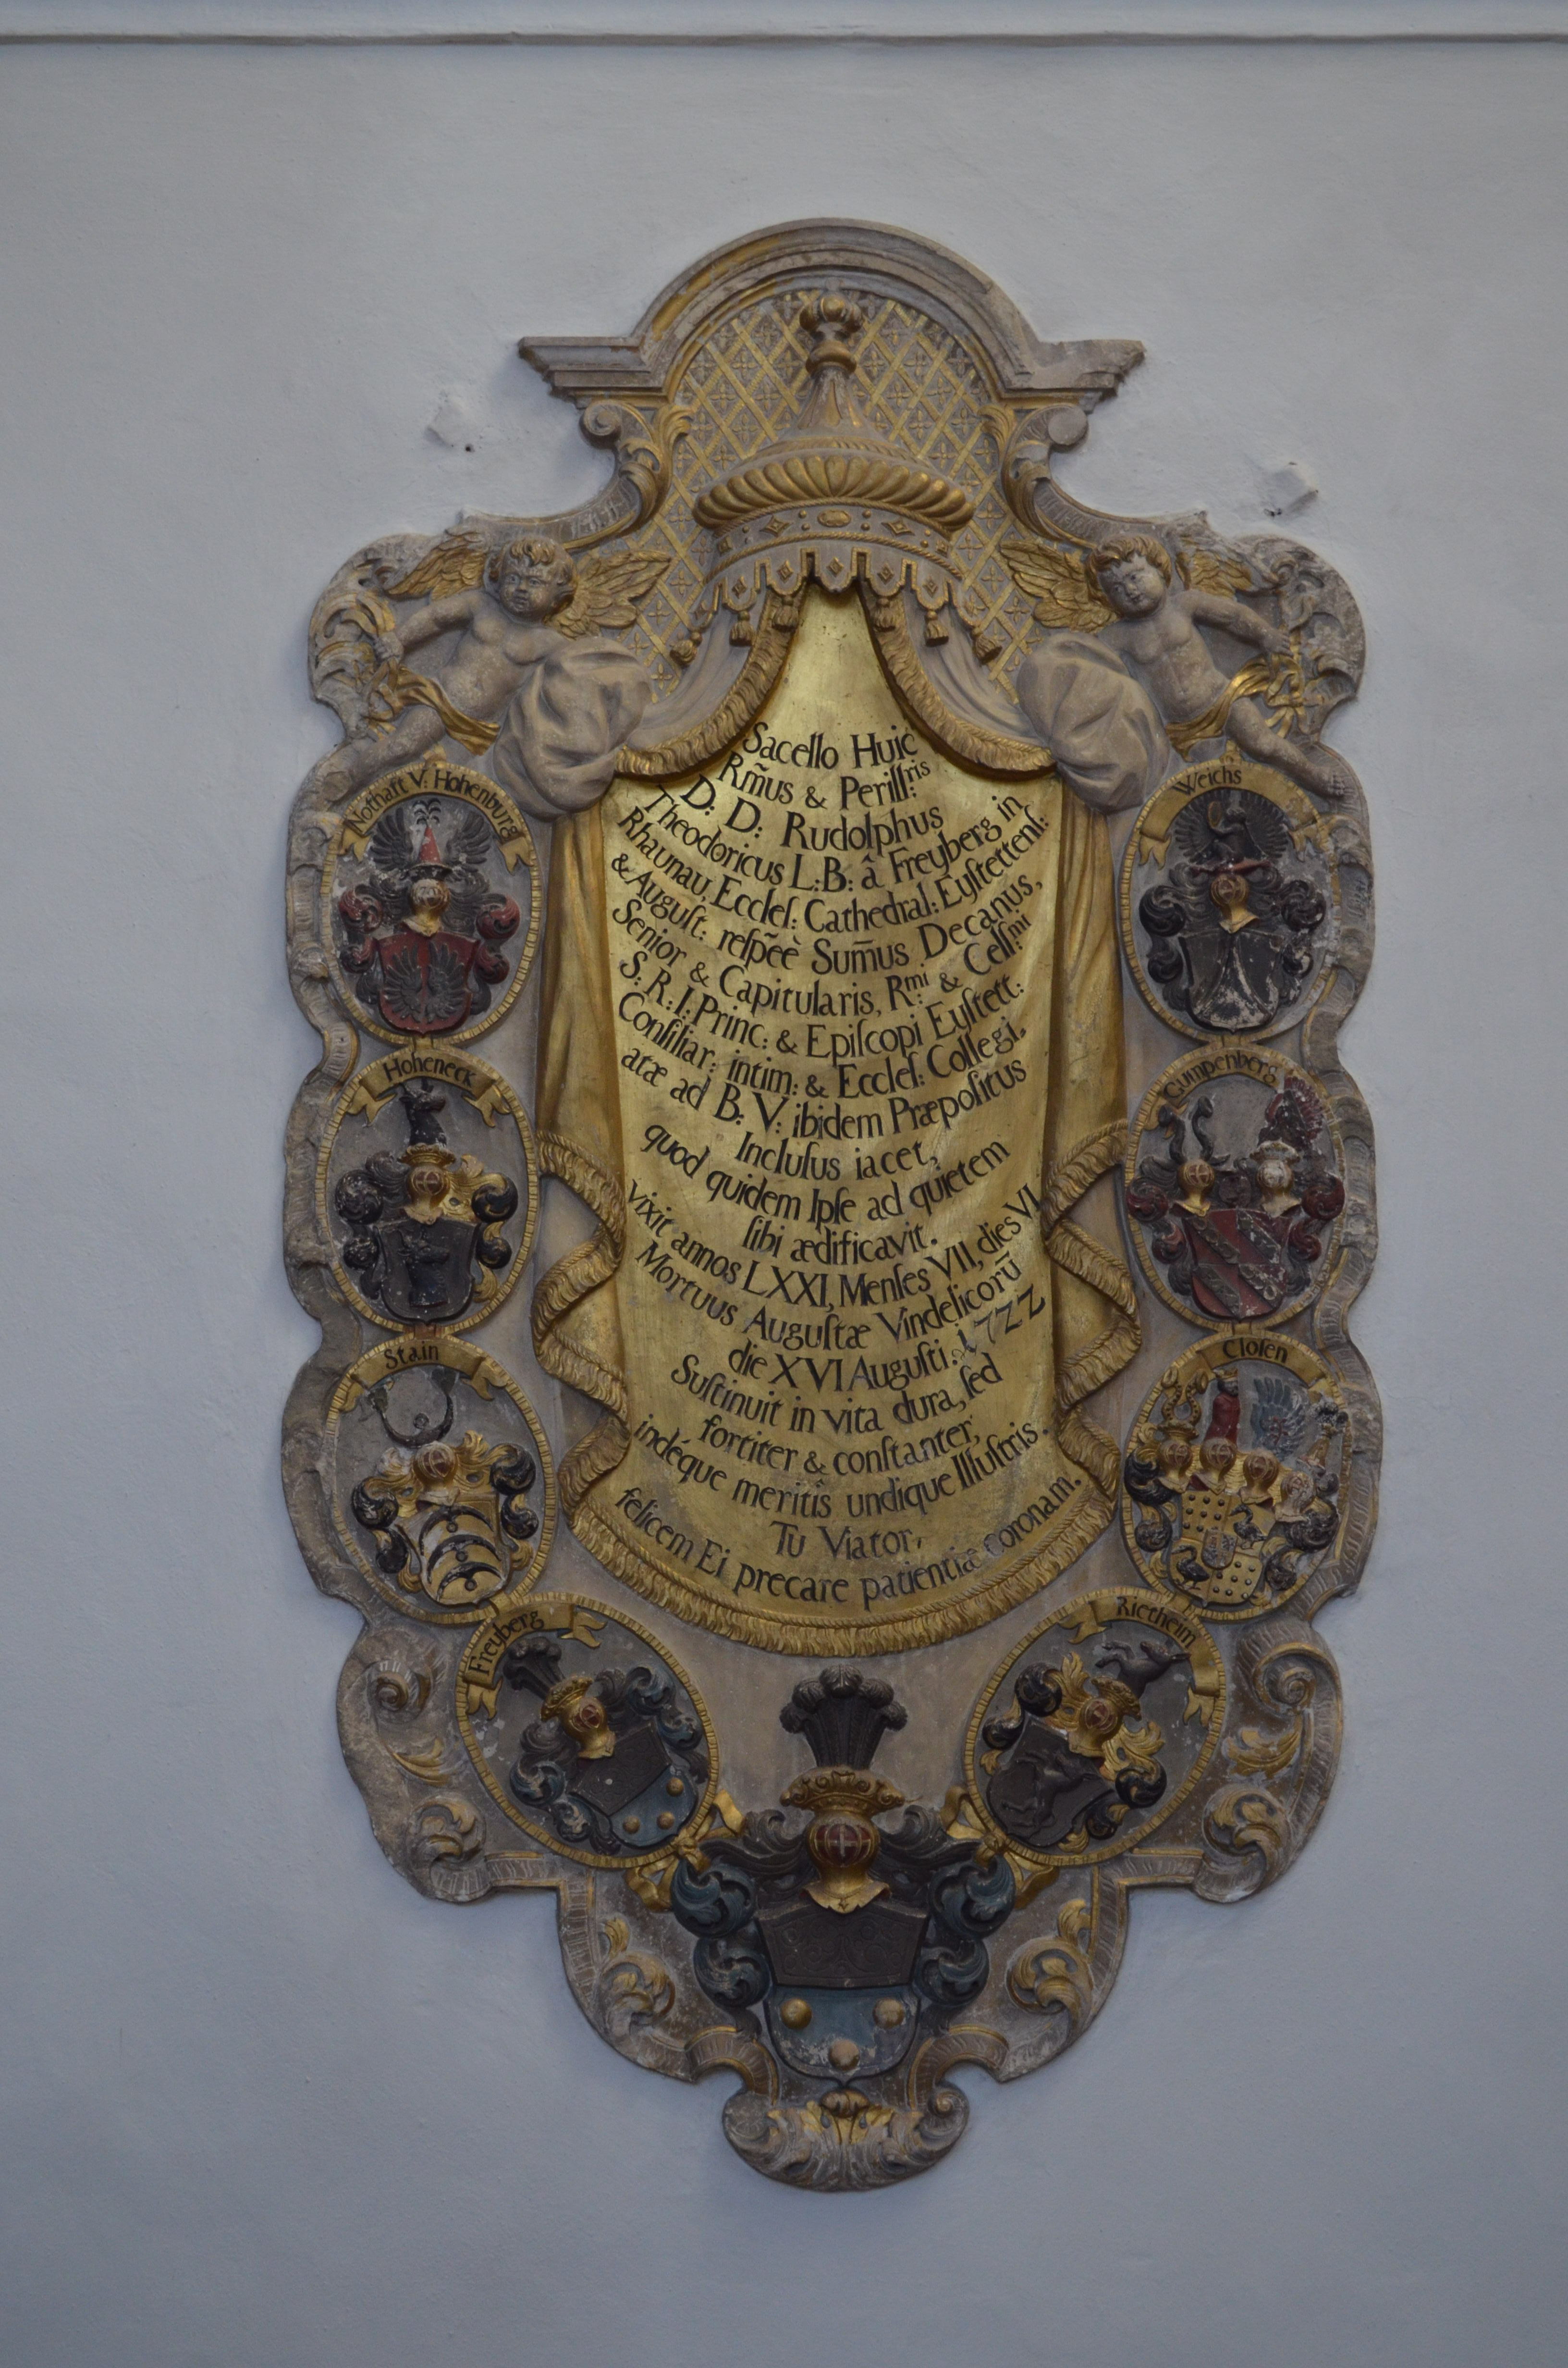 Sacello Huic
Rm̃us & Perill:ris
D: D: Rudolphus
Theodoricus L:B: â Freyberg in
Rhaunau, Eccleſ: Cathedral: Eyſtettenſ:
& Auguſt: reſpẽè Sum̃us Decanus,
Senior & Capitularis, R:mi & Celſ:mi
S. R. I. Princ: & Epiſcopi Eyſtett:
Conſiliar: intim: & Eccleſ: Collegi,
atæ ad B: V: ibidem Præpoſitus
Incluſus iacet,
quod quidem Ipſe ad quietem
ſibi ædificavit.
vixit annos LXXI, Menſes VII, dies VI
Mortuus Auguſtæ Vindelicorũ
die XVI Auguſti. 1722
Suſtinuit in vita dura, ſed
fortiter & conſtanter,
indéque meritis undique Illuſtris.
Tu Viator,
felicem Ei precare patientiæ coronam.
Nothaft V: Hohenburg
Weichs
Hoheneck
Gumpenberg
Stain
Cloſen
Freyberg
Rietheim